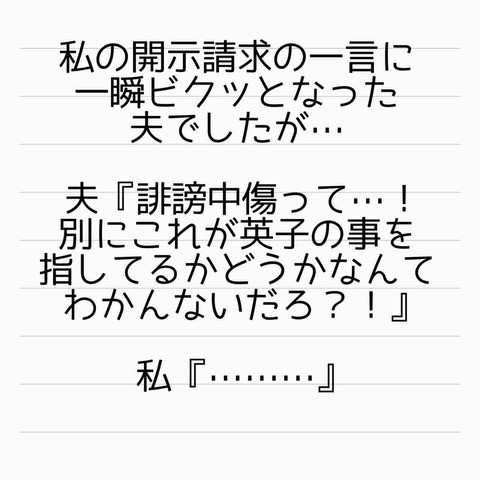 私の開示請求の一言に
一瞬ビクッとなった
夫でしたが…
夫『誹謗中傷って…！
別にこれが英子の事を
指してるかどうかなんて
わかんないだろ？！』
私『………』